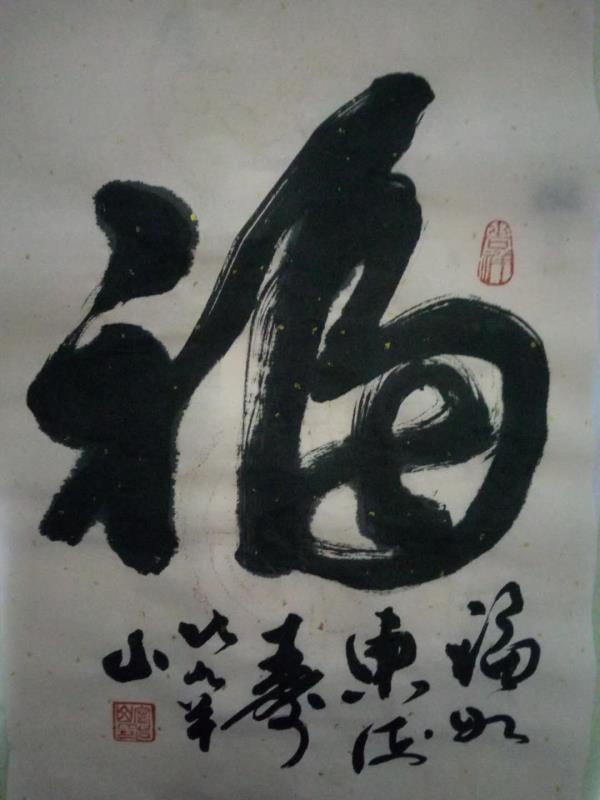 福
福如
東海
壽
比南
山
吉祥